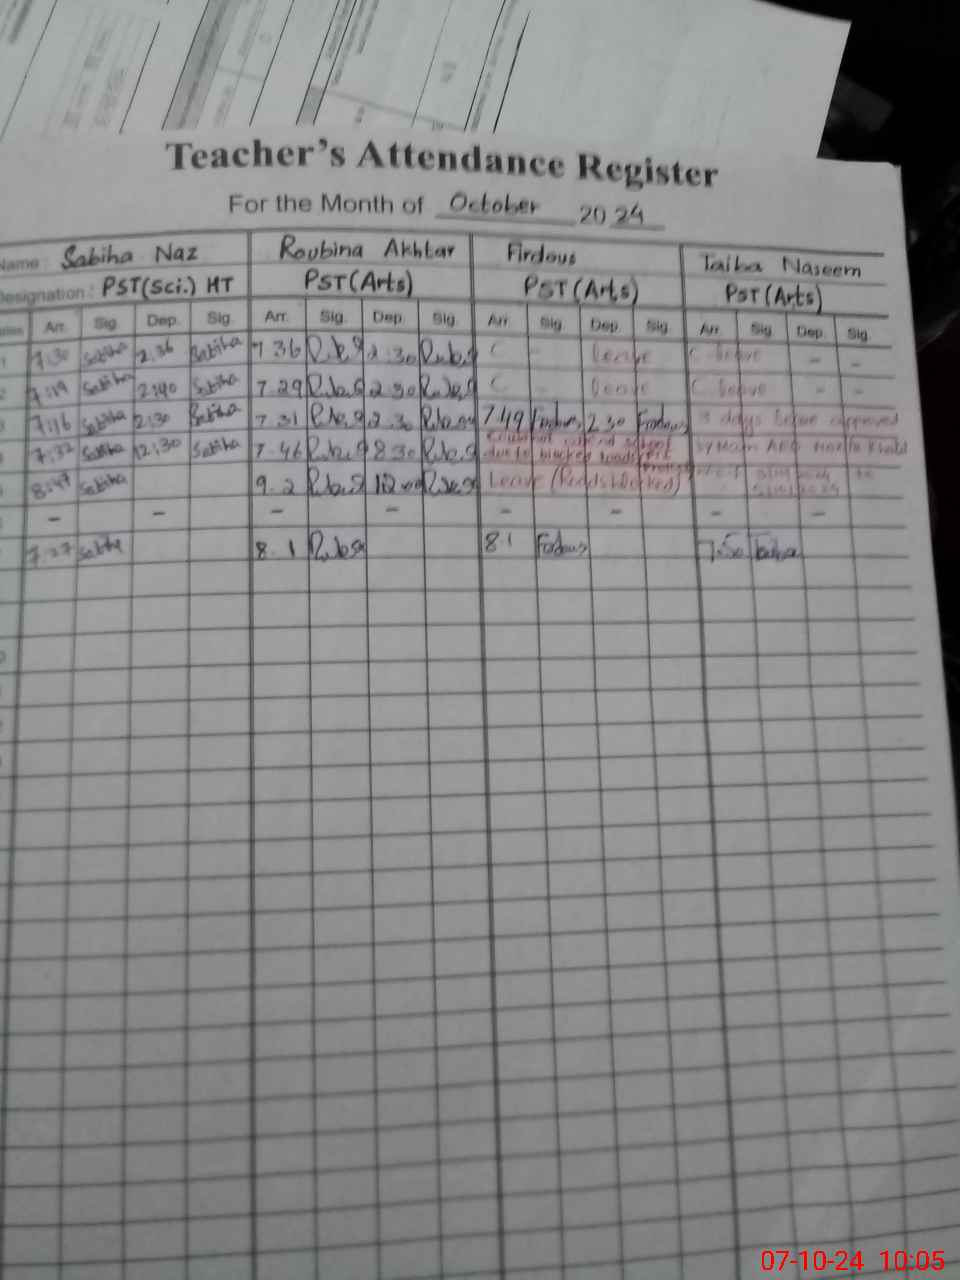 Teacher's Attendance Register
For the Month of October 2024
Name: Sabiha Naz Roubina Akhtar Firdous Taiba Naseem
Designation: PST(Sci.) HT PST(Arts) PST(Arts) PST(Arts)
Arr. Sig. Dep. Sig. Arr. Sig. Dep. Sig. Arr. Sig. Dep. Sig. Arr. Sig. Dep. Sig.
7:30 Sabiha 2:36 Sabiha 7.36 2:30 C - Leave C Leave - -
7:19 Sabiha 2:40 Sabiha 7.29 2.30 C - Leave C Leave - -
7:16 Sabiha 2:30 Sabiha 7.31 2.30 7.49 Firdous 2.30 Firdous 3 days leave approved
7:32 Sabiha 12:30 Sabiha 7.46 8.30 due to blocked roads by Mam AEO
8:47 Sabiha 9.2 12.00 Leave (Roads blocked)
- - - - - - -
7:27 Sabiha 8.1 8.1 Firdous 7.50 Taiba
07-10-24 10:05